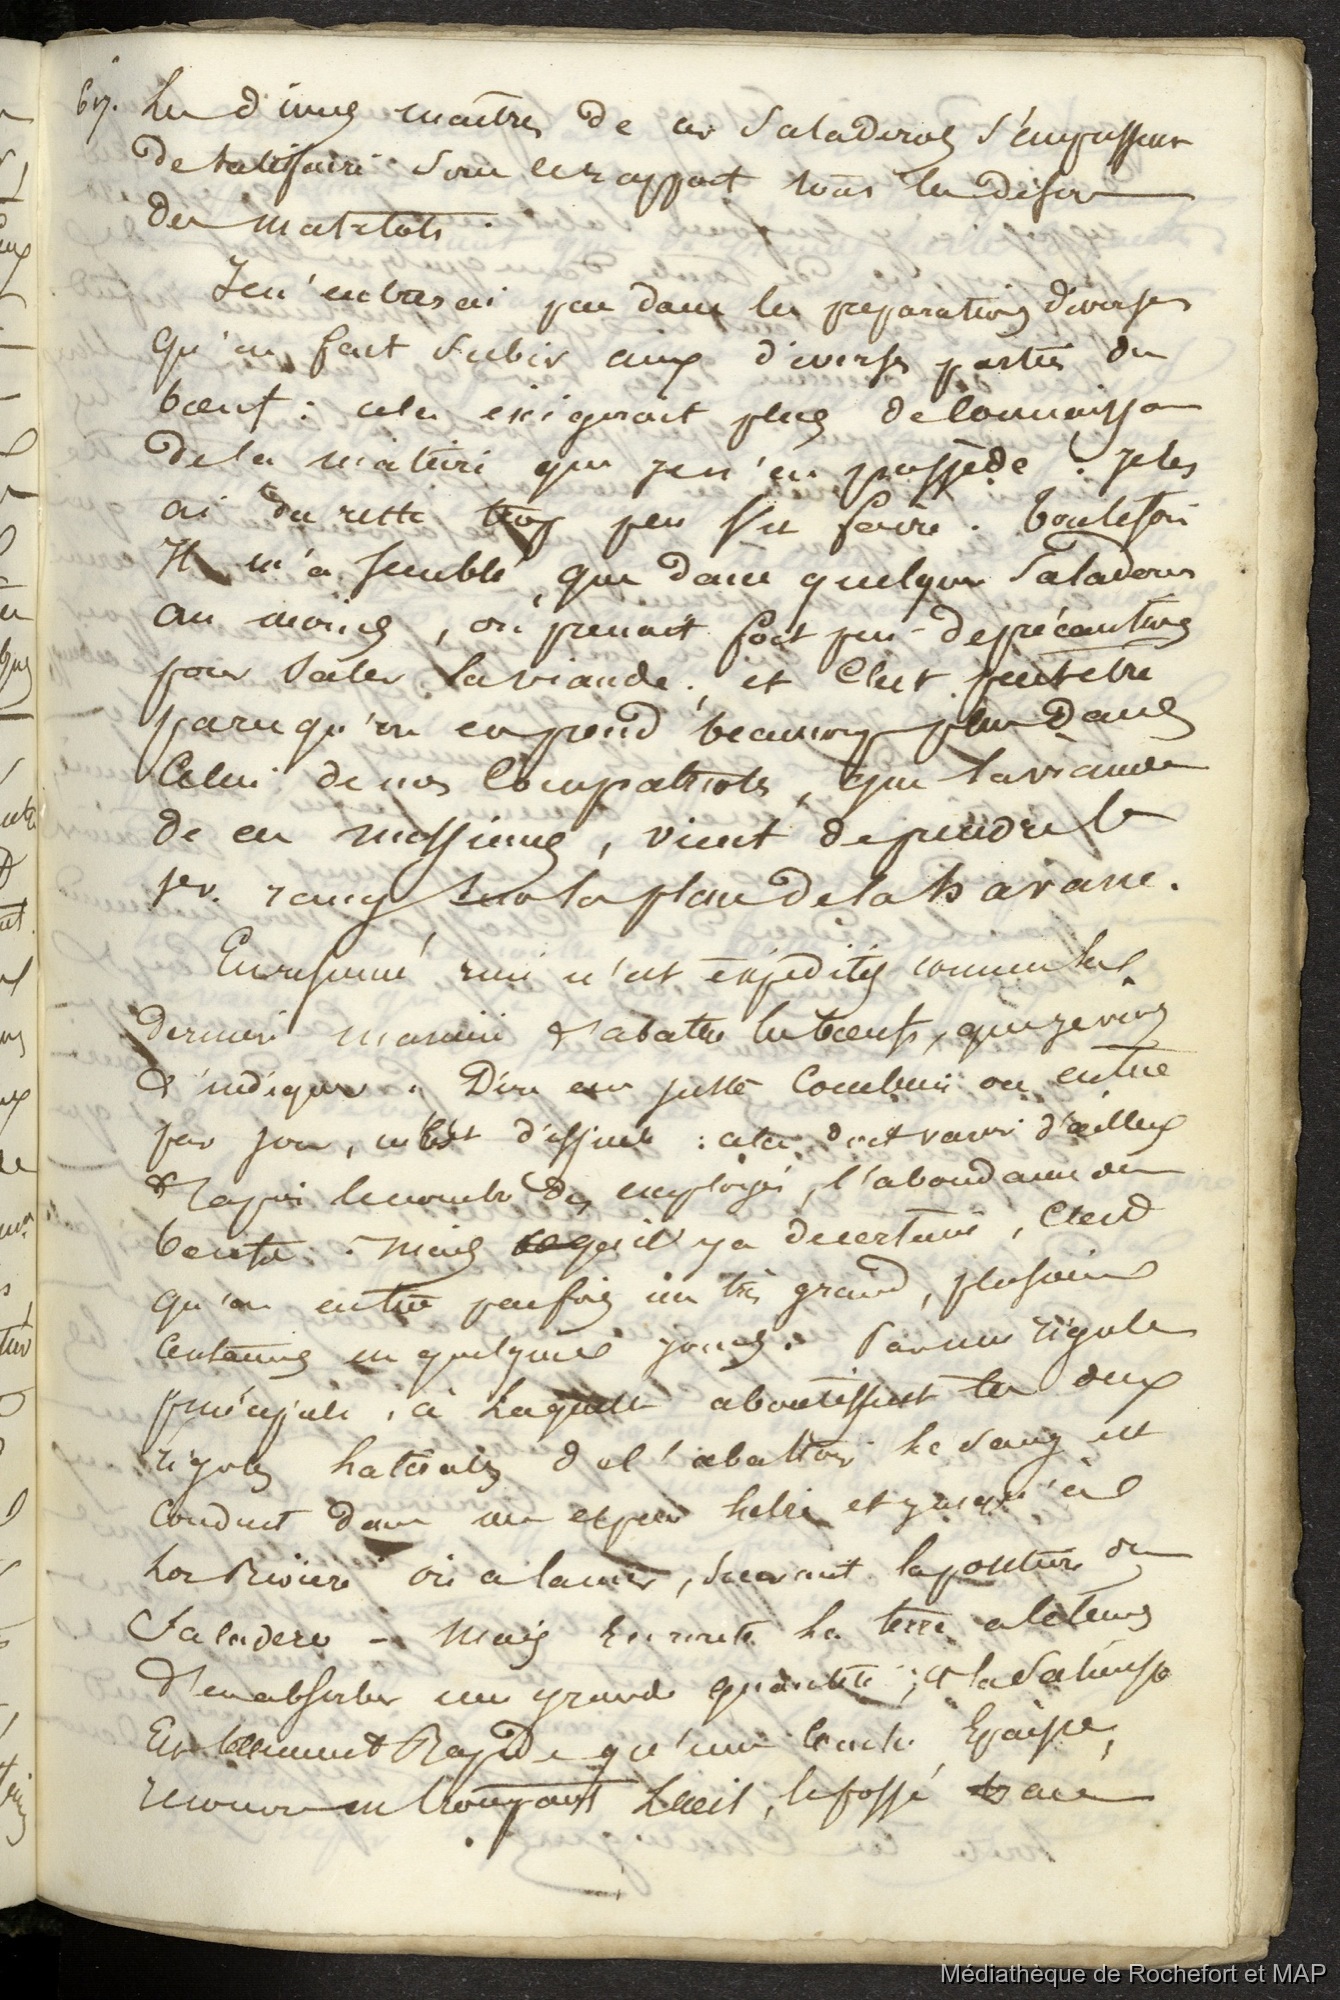 617. Les divers maîtres de ces Saladeros s'empressent
de satisfaire sous ce rapport tous les désirs
des matelots.
Je n'entrerai pas dans les préparations diverses
qu'on fait subir aux diverses parties du
bœuf : cela exigerait plus de connaissance
de la matière que je n'en possède. Je les
ai du reste trop peu vu faire. Toutefois
Il m'a semblé, que dans quelques Saladeros
au moins, on prenait fort peu de précautions
pour saler la viande ; et c'est peut être
parce qu'on en prend beaucoup plus dans
Celui de nos Compatriotes, que la viande
de ces messieurs, vient de prendre le
1er. rang sur la place de la havane.
En résumé rien n'est expéditif comme la
dernière manière d'abattre les bœufs, que je viens
d'indiquer. Dire au juste Combien on en tue
par jour, est difficile : cela doit varier d'ailleurs
d'après le nombre des employés, l'abondance du
bœufs. Mais ce qu'il y a de certain, c'est
qu'on en tue parfois un très grand, plusieurs
Centaines en quelques jours. Par une rigole
principale, à laquelle aboutissent les deux
rigoles latérales de l'abattoir le sang est
Conduit dans un espace libre et jusqu'à
la Rivière ou à la mer, suivant la position du
Saladero - Mais en route la terre a le temps
d'en absorber une grande quantité ; et la
Rapide qu'une couche Epaisse,
recouvre en trompant l'œil, le fossé
Médiathèque de Rochefort et MAP